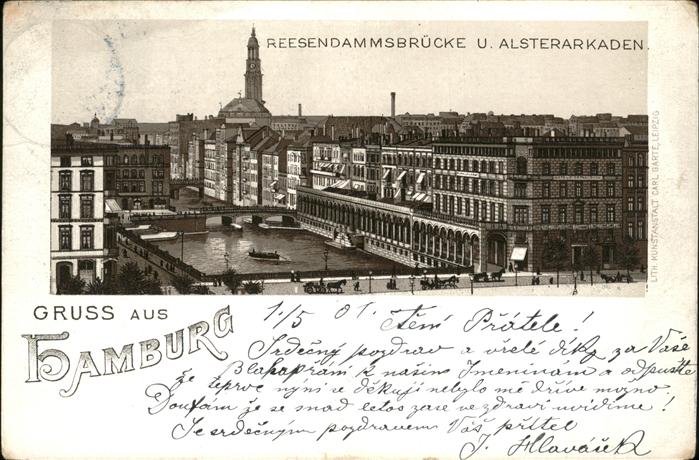 REESENDAMMSBRÜCKE U. ALSTERARKADEN.
LITH. KUNSTANSTALT CARL GARTE, LEIPZIG
GRUSS AUS
HAMBURG
1/5 01. Ctění Přátelé!
Srdečný pozdrav a vřelé díky za Vaše
Blahopřání k našim Jmeninám a odpusťte
že teprve nyní se děkuji nebylo mě dříve možno.
Doufám že se snad letos zase ve zdraví uvidíme!
Se srdečným pozdravem Váš přítel
J. Hlaváček